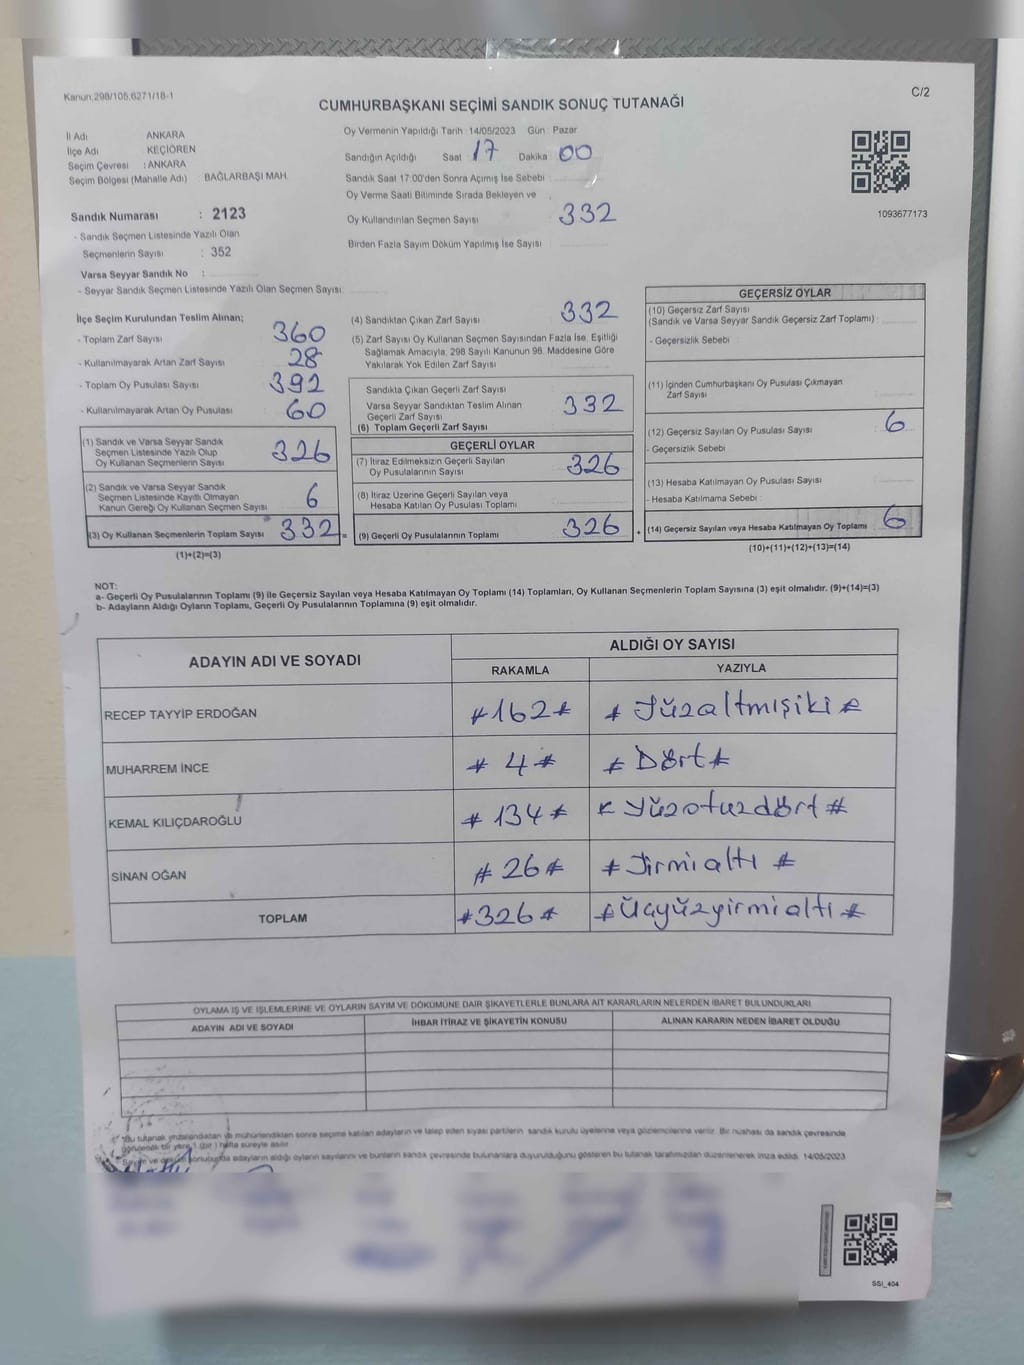 Kanun:298/105,6271/18-1
C/2
CUMHURBAŞKANI SEÇİMİ SANDIK SONUÇ TUTANAĞI
İl Adı ANKARA
İlçe Adı KEÇİÖREN
Seçim Çevresi : ANKARA
Seçim Bölgesi (Mahalle Adı) : BAĞLARBAŞI MAH.
Sandık Numarası : 2123
- Sandık Seçmen Listesinde Yazılı Olan
Seçmenlerin Sayısı : 352
Varsa Seyyar Sandık No :
- Seyyar Sandık Seçmen Listesinde Yazılı Olan Seçmen Sayısı:
Oy Vermenin Yapıldığı Tarih 14/05/2023 Gün: Pazar
Sandığın Açıldığı Saat 17 Dakika 00
Sandık Saat 17:00'den Sonra Açımış İse Sebebi
Oy Verme Saati Bitiminde Sırada Bekleyen ve
Oy Kullandırılan Seçmen Sayısı 332
Birden Fazla Sayım Döküm Yapılmış İse Sayısı
1093677173
İlçe Seçim Kurulundan Teslim Alınan;
- Toplam Zarf Sayısı 360
- Kullanılmayarak Artan Zarf Sayısı 28
- Toplam Oy Pusulası Sayısı 392
- Kullanılmayarak Artan Oy Pusulası 60
(1) Sandık ve Varsa Seyyar Sandık
Seçmen Listesinde Yazılı Olup
Oy Kullanan Seçmenlerin Sayısı 326
(2) Sandık ve Varsa Seyyar Sandık
Seçmen Listesinde Kayıtlı Olmayan
Kanun Gereği Oy Kullanan Seçmen Sayısı 6
(3) Oy Kullanan Seçmenlerin Toplam Sayısı 332 =
(1)+(2)=(3)
(4) Sandıktan Çıkan Zarf Sayısı 332
(5) Zarf Sayısı Oy Kullanan Seçmen Sayısından Fazla İse, Eşitliği
Sağlamak Amacıyla, 298 Sayılı Kanunun 98. Maddesine Göre
Yakılarak Yok Edilen Zarf Sayısı
Sandıkta Çıkan Geçerli Zarf Sayısı
Varsa Seyyar Sandıktan Teslim Alınan
Geçerli Zarf Sayısı
(6) Toplam Geçerli Zarf Sayısı 332
GEÇERLİ OYLAR
(7) İtiraz Edilmeksizin Geçerli Sayılan
Oy Pusulalarının Sayısı 326
(8) İtiraz Üzerine Geçerli Sayılan veya
Hesaba Katılan Oy Pusulası Toplamı
(9) Geçerli Oy Pusulalarının Toplamı 326 +
GEÇERSİZ OYLAR
(10) Geçersiz Zarf Sayısı
(Sandık ve Varsa Seyyar Sandık Geçersiz Zarf Toplamı) :
- Geçersizlik Sebebi :
(11) İçinden Cumhurbaşkanı Oy Pusulası Çıkmayan
Zarf Sayısı
(12) Geçersiz Sayılan Oy Pusulası Sayısı : 6
- Geçersizlik Sebebi
(13) Hesaba Katılmayan Oy Pusulası Sayısı
- Hesaba Katılmama Sebebi :
(14) Geçersiz Sayılan veya Hesaba Katılmayan Oy Toplamı 6
(10)+(11)+(12)+(13)=(14)
NOT:
a- Geçerli Oy Pusulalarının Toplamı (9) ile Geçersiz Sayılan veya Hesaba Katılmayan Oy Toplamı (14) Toplamları, Oy Kullanan Seçmenlerin Toplam Sayısına (3) eşit olmalıdır. (9)+(14)=(3)
b- Adayların Aldığı Oyların Toplamı, Geçerli Oy Pusulalarının Toplamına (9) eşit olmalıdır.
ADAYIN ADI VE SOYADI
ALDIĞI OY SAYISI
RAKAMLA YAZIYLA
RECEP TAYYİP ERDOĞAN #162# # Yüzaltmışiki #
MUHARREM İNCE # 4 # # Dört #
KEMAL KILIÇDAROĞLU # 134 # # Yüzotuzdört #
SİNAN OĞAN # 26 # # Yirmialtı #
TOPLAM #326 # # Üçyüzyirmialtı #
OYLAMA İŞ VE İŞLEMLERİNE VE OYLARIN SAYIM VE DÖKÜMÜNE DAİR ŞİKAYETLERLE BUNLARA AİT KARARLARIN NELERDEN İBARET BULUNDUKLARI
ADAYIN ADI VE SOYADI İHBAR İTİRAZ VE ŞİKAYETİN KONUSU ALINAN KARARIN NEDEN İBARET OLDUĞU
"Bu tutanak imzalandıktan ve mühürlendikten sonra seçime katılan adayların ve talep eden siyasi partilerin sandık kurulu üyelerine veya gözlemcilerine verilir. Bir nüshası da sandık çevresinde
görülecek bir yere 1 (bir) hafta süreyle asılır.
Sayım ve döküm sonucunda adayların aldığı oyların sayılarını ve bunların sandık çevresinde bulunanlara duyurulduğunu gösteren bu tutanak tarafımızdan düzenlenerek imza edildi. 14/05/2023
SSI_404